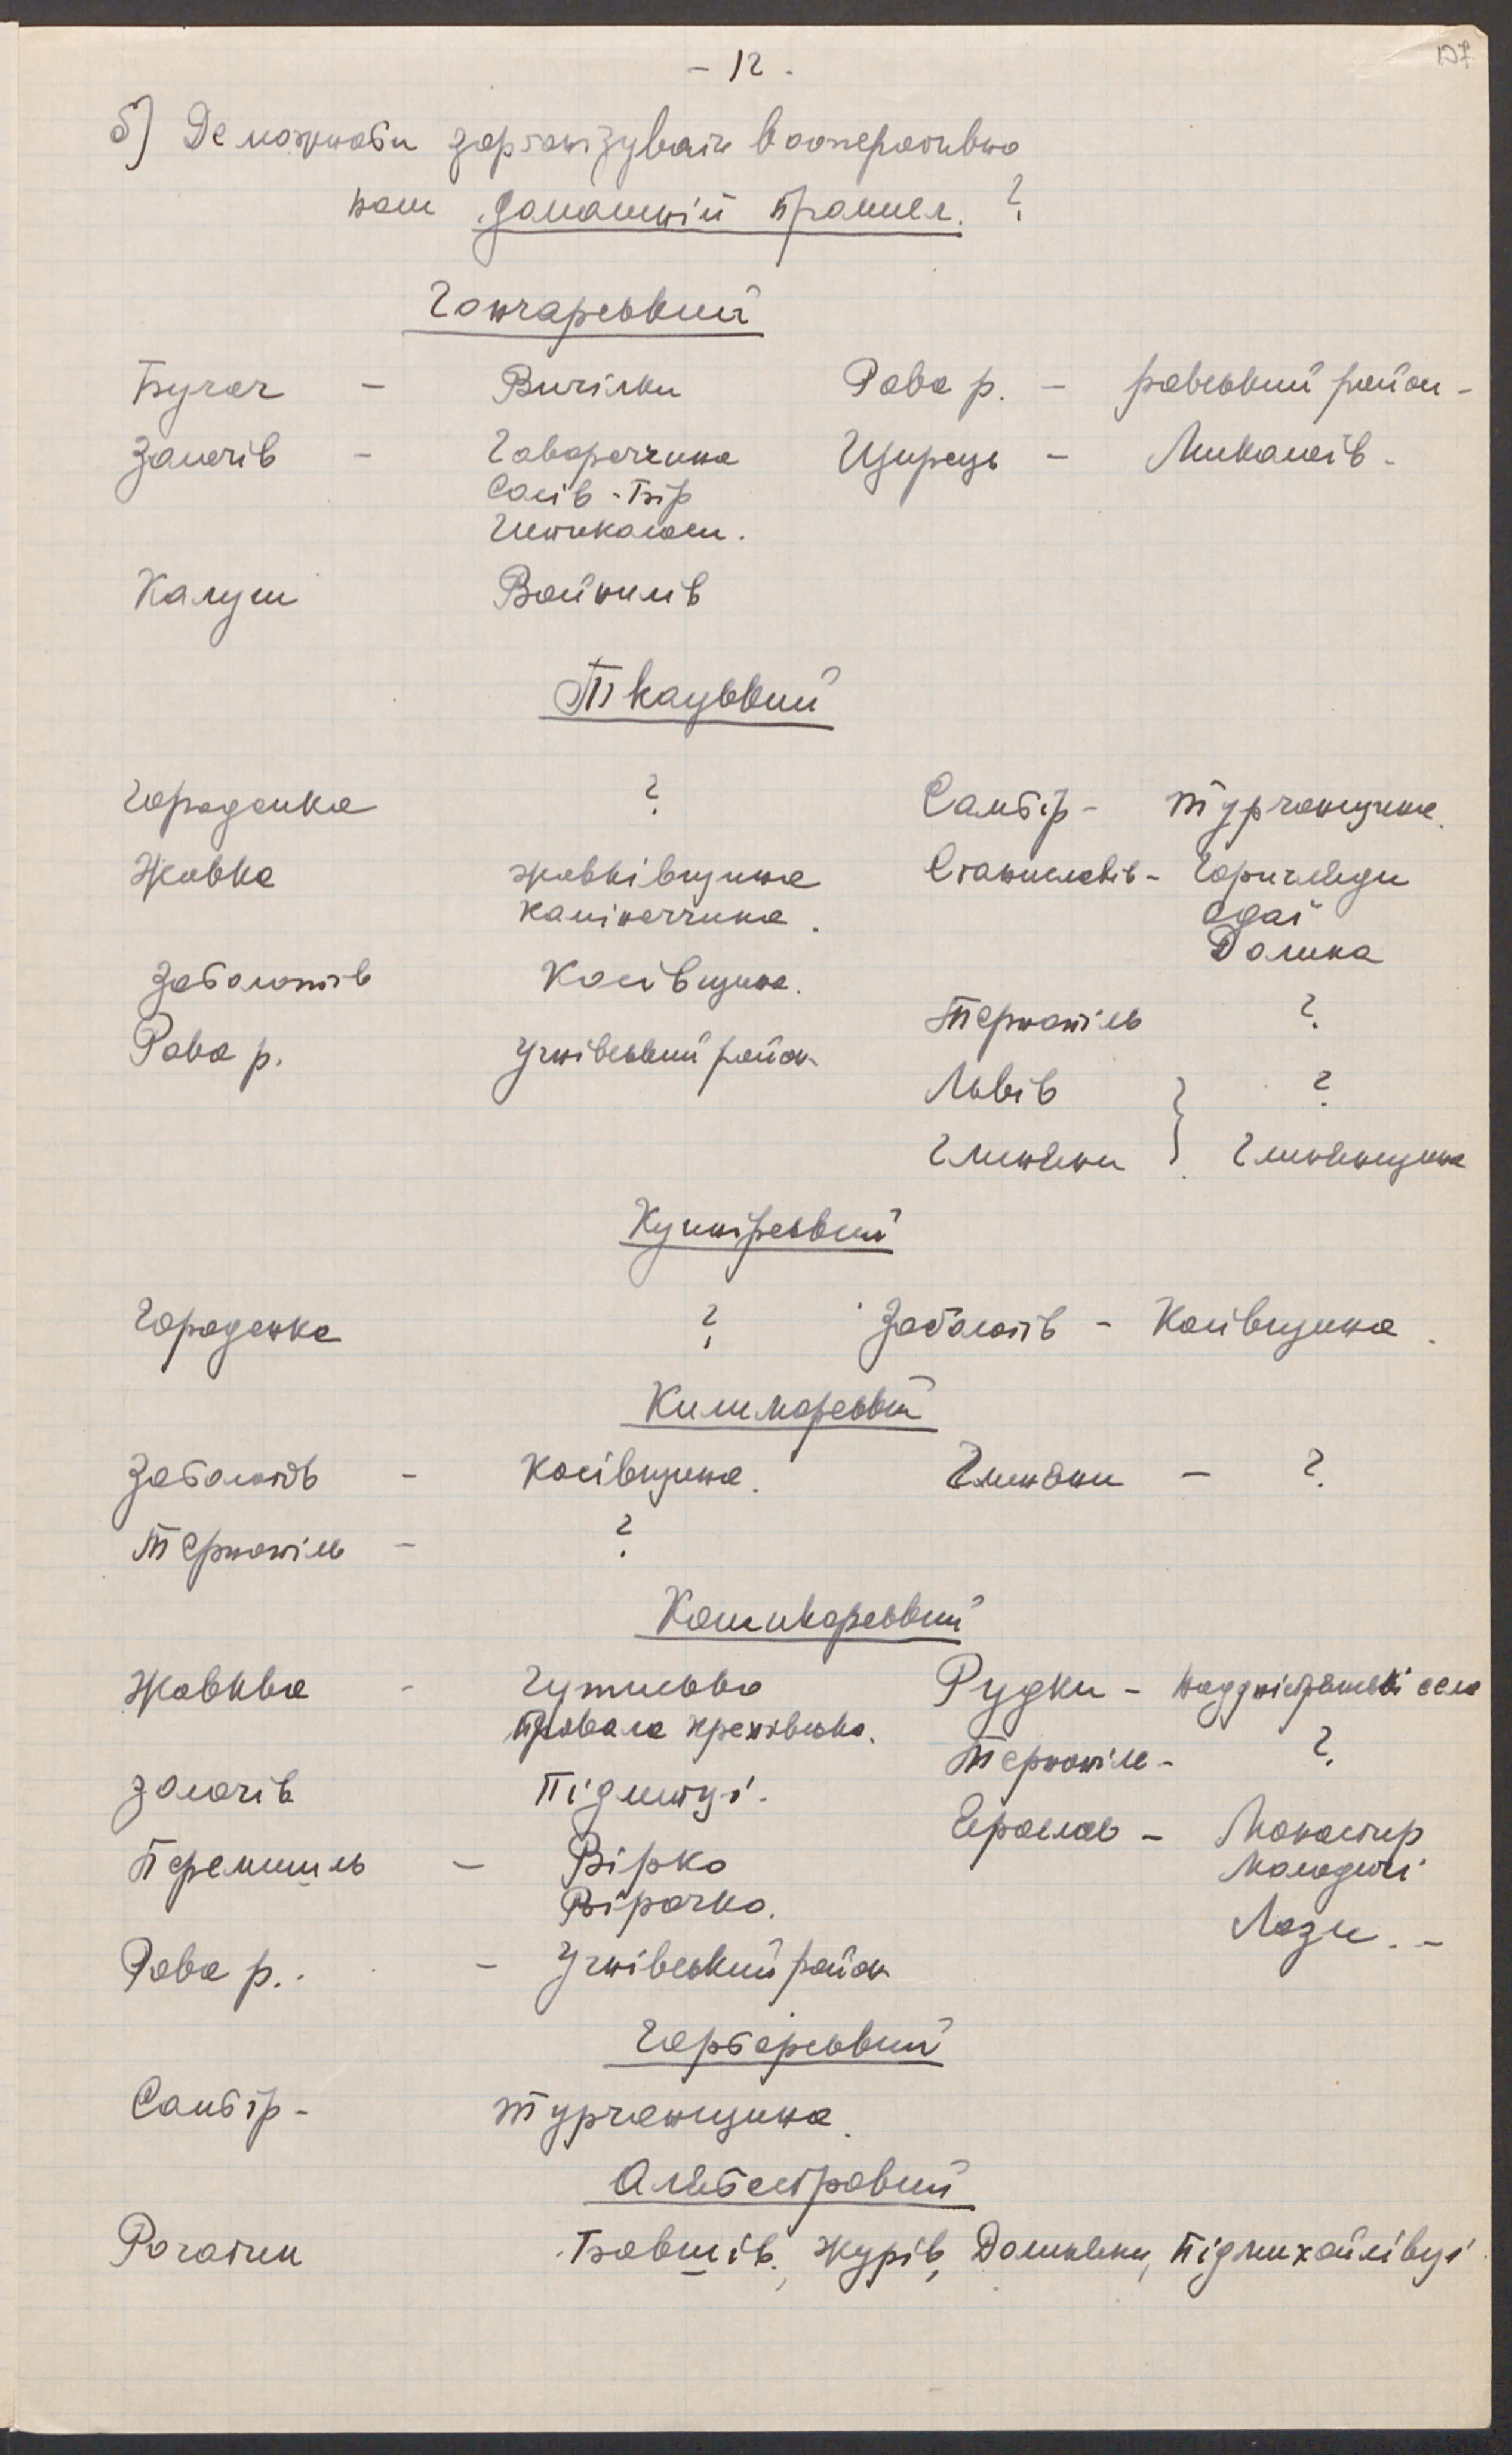 - 12 -
127
б) Де можнаби зорганізувати кооперативно
наш домашній промисл. ?
Гончарський
Бучач - Вичілки Рава р. - равський район -
Золочів - Гаворечина Щирець - Миколаїв -
Сасів - Бір
Калуш Войнилів
Ткацький
Городенка ? Самбір - Турчанщина.
Жовква жовківщина Станиславів - Горигляди
каміноччина. Одаї
Долина
Заболотів Косівщина.
Тернопіль ?
Рава р. Угнівський район
Львів } ?
Глиняни } Глинянщина
Кушнірський
Городенка ? Заболотів - Косівщина.
Килимарський
Заболотів - Косівщина. Глиняни - ?
Тернопіль - ?
Кошикарський
Жовква - Гутисько Рудки - наддністрянські села
Тернопіль - ?
Золочів Підлитці.
Ярослав - Монастир
Перемишль - Вірко Молодичі
Вірочко.
Лази. -
Рава р. - Угнівський район
Гарбарський
Самбір - Турчанщина.
Алябастровий
Рогатин Бовшів, Журів, Долиняни, Підмихайлівці